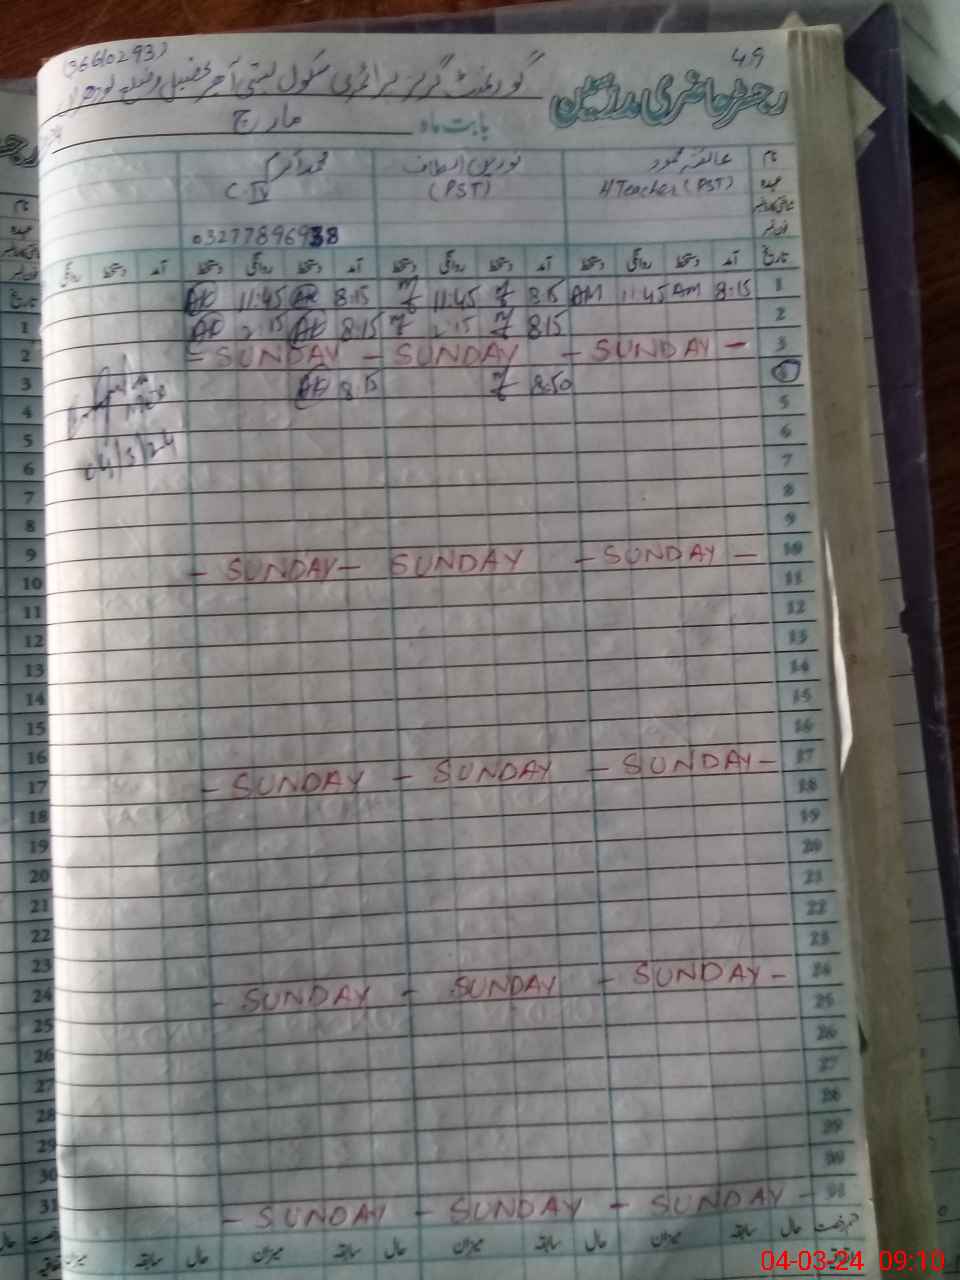 (36610293)
49
گورنمنٹ گرلز پرائمری سکول بستی
رجسٹر حاضری مدرسین
بابت ماہ مارچ
نام
محمد اکرم
نورین الطاف
عائشہ محمود
عہدہ
C. IV
(PST)
H Teacher (PST)
تاریخ آمد دستخط روانگی دستخط آمد دستخط روانگی دستخط آمد دستخط روانگی دستخط آمد دستخط روانگی
1 8:15 AM 11:45 AM 8:15 11:45 8:15 11:45
2 8:15 2:15 8:15 2:15
3 - SUNDAY - SUNDAY - SUNDAY -
4 8:50 8:15
04/3/24
5
6
7
8
9
10 - SUNDAY - SUNDAY - SUNDAY -
11
12
13
14
15
16
17 - SUNDAY - SUNDAY - SUNDAY -
18
19
20
21
22
23
24 - SUNDAY - SUNDAY - SUNDAY -
25
26
27
28
29
30
31 - SUNDAY - SUNDAY - SUNDAY -
حال سابقہ میزان حال سابقہ میزان حال سابقہ میزان
04-03-24 09:10